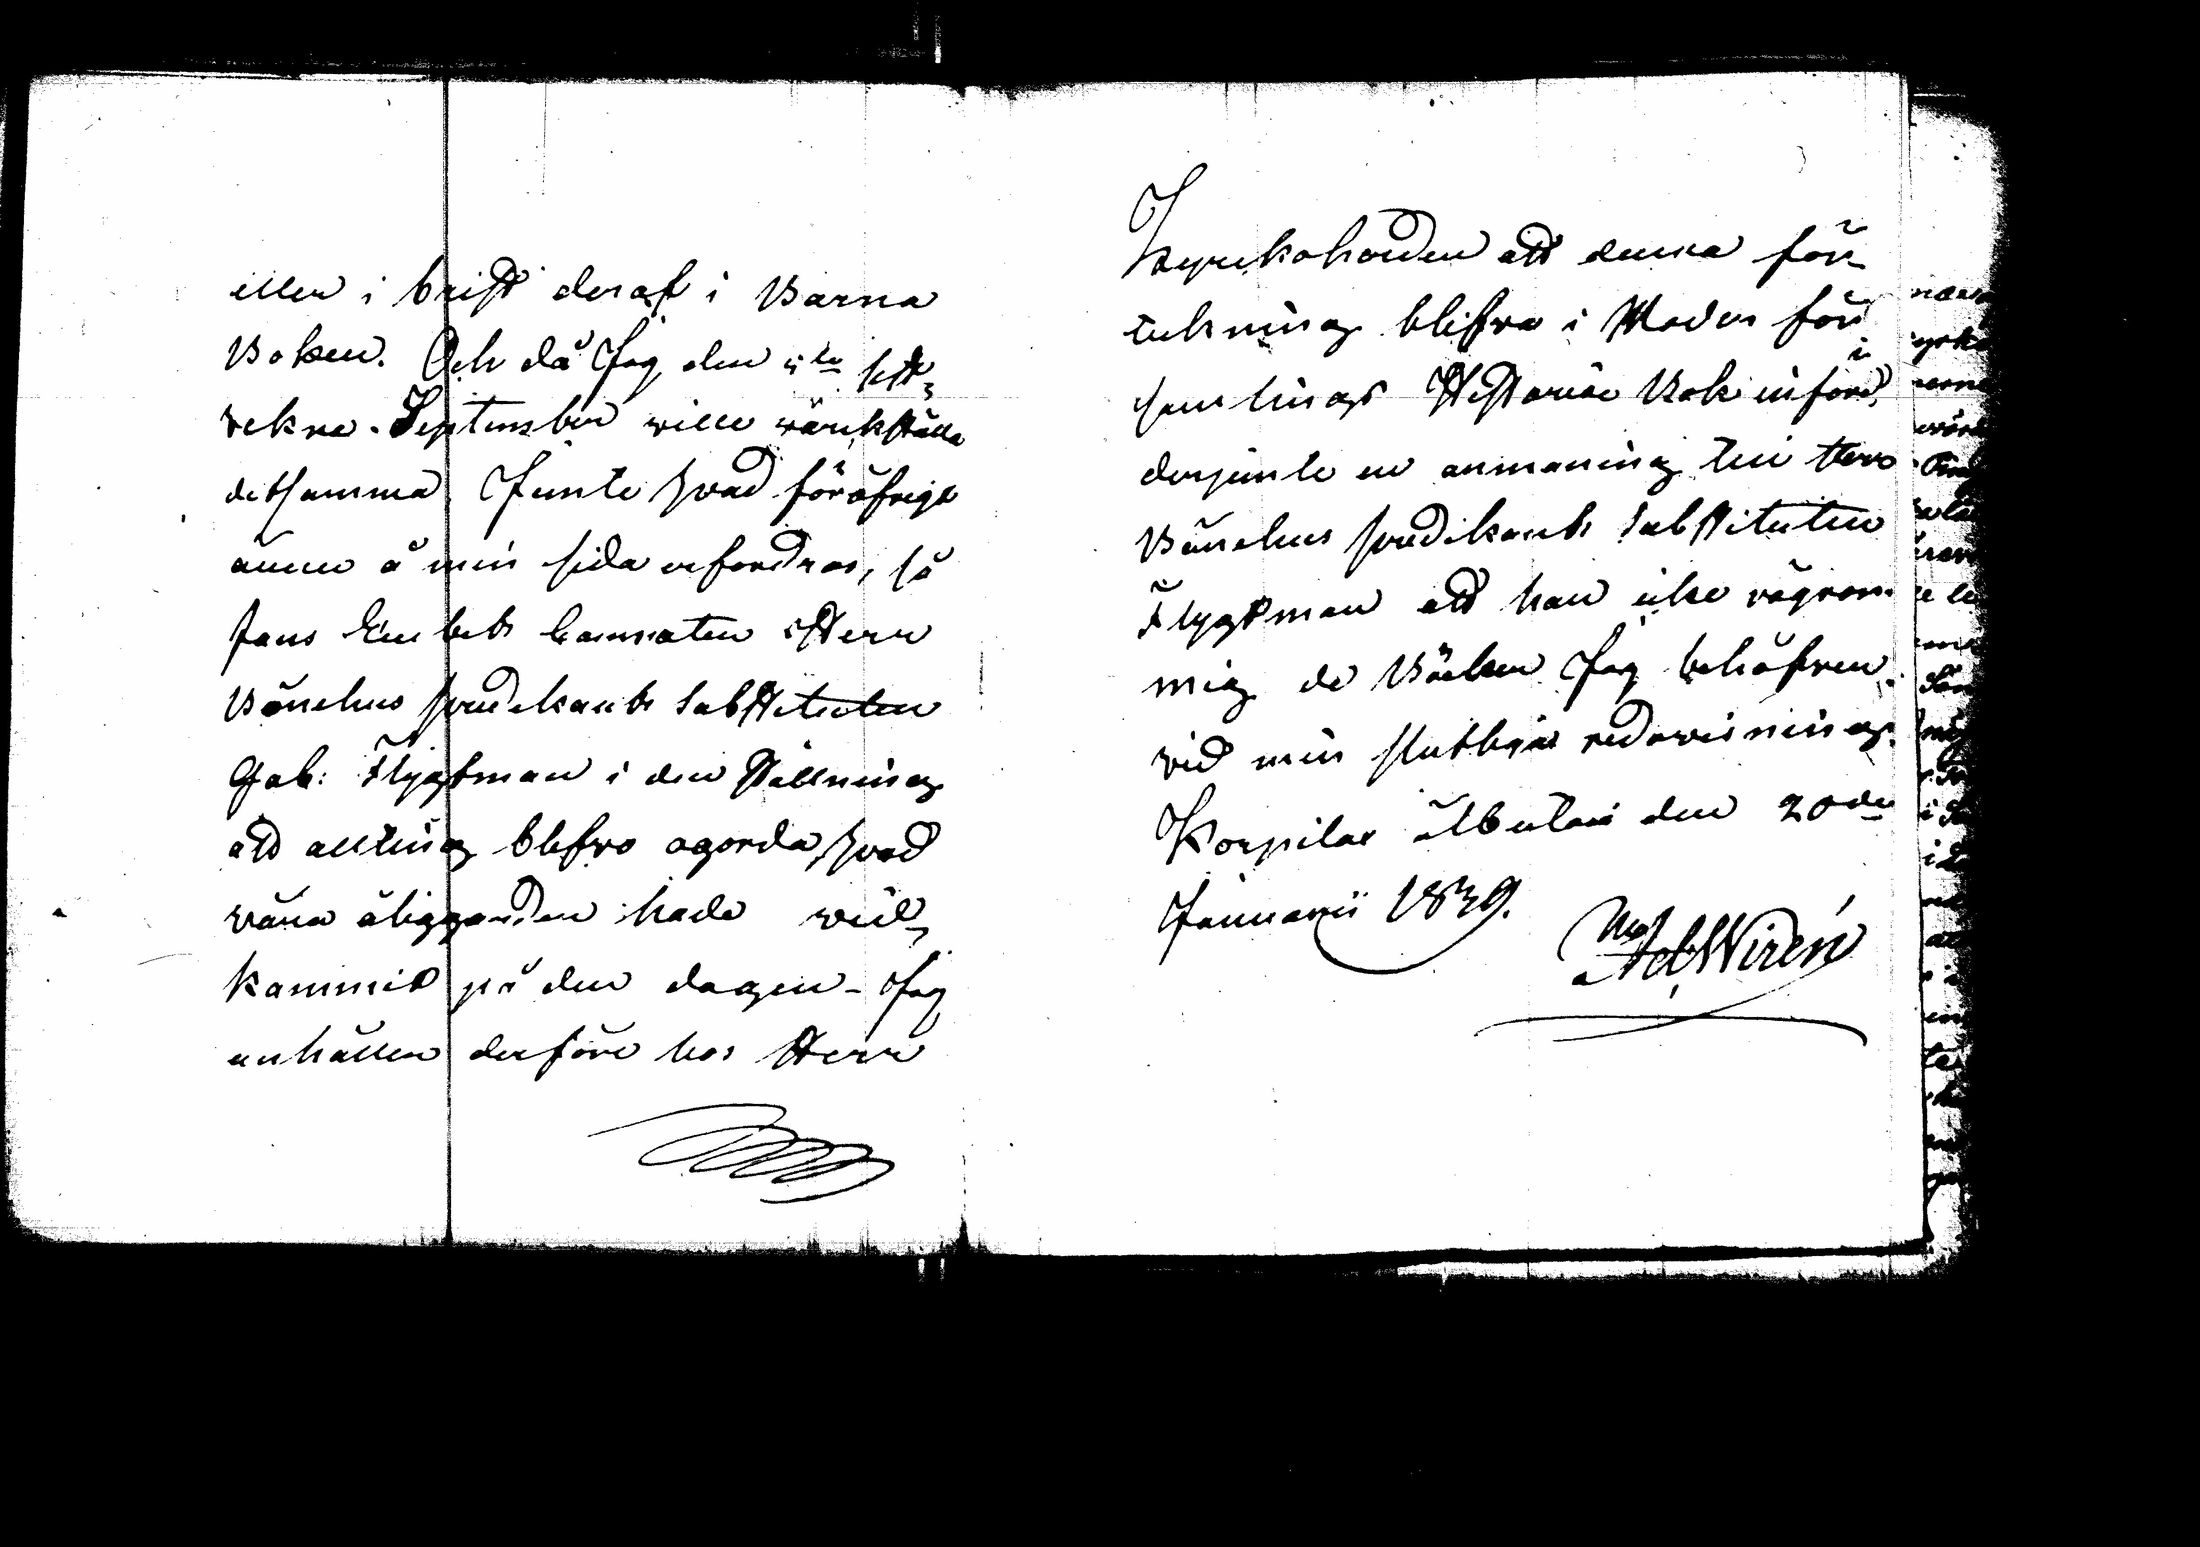 eller i brist deraf i Barna
Boken. Och då Jag den sist,,
vekne September wille wärkställa
detsamma, Jemte hvad föröfrigt
ännu å min sida erfordras, så
fans Embets Cammaten Herr
Bönehus predikants Substituten
Gab: Flygtman i den ställning
att allting blefvo ogorda, hvad
våra åligganden hade vid,,
kommit på den dagen - Jag
anhåller derföre hos Herr
Kyrkoherden att denna för,,
tekning blifva i Moder för
samlings Historiæ Bok införd,
derjemte en anmaning till Herr
Bönehus predikants Substituten
Flygtman att han icke vägrar
mig de Böcker Jag behöfver
vid min slutliga redovisning.
Korpilax den 20de
Januarii 1839.
Wirén